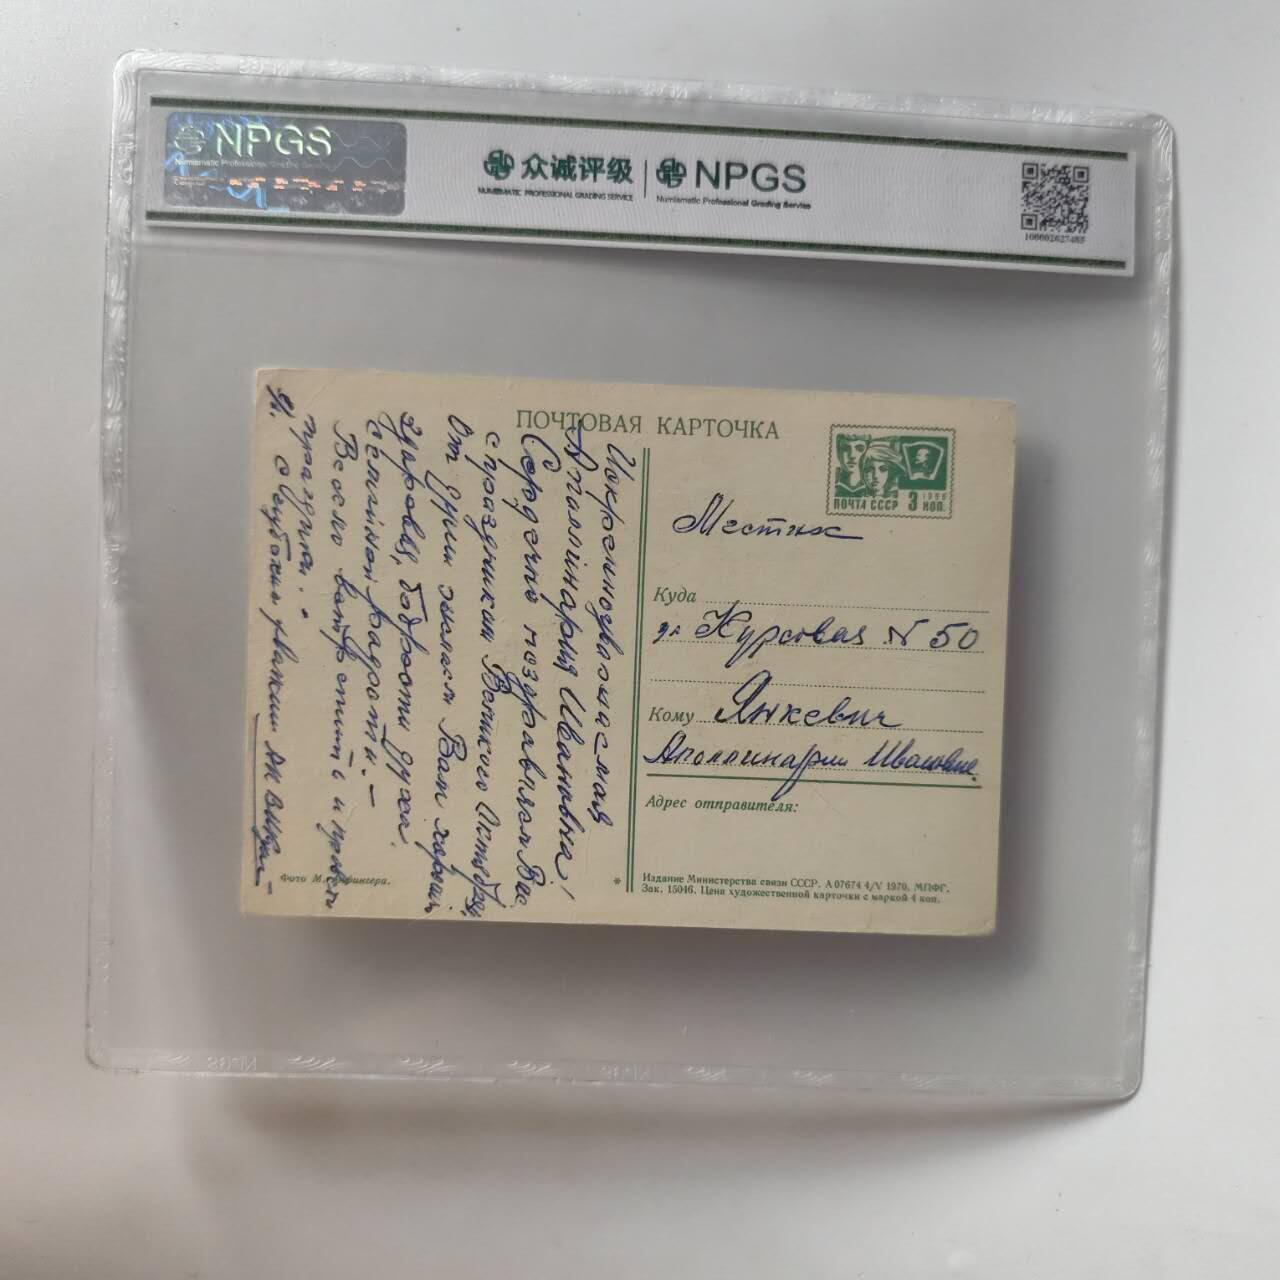 NPGS
Numismatic Professional Grading Service
众诚评级
NUMISMATIC PROFESSIONAL GRADING SERVICE
NPGS
Numismatic Professional Grading Service
ПОЧТОВАЯ КАРТОЧКА
ПОЧТА СССР 3 КОП.
1966
Искренноуважаемая
Аполлинария Ивановна!
Сердечно поздравляю Вас
с праздником Великого Октября,
От души желаем Вам хорошего
здоровья, бодрости духа,
семейной радости.
Весело встретить и провести
праздник.
с глубоким уважением
Местное
Куда
ул Курсовая N 50
Кому Янкевич
Аполлинарии Ивановне.
Адрес отправителя:
Фото М.
*
Издание Министерства связи СССР. А 07674 4/V 1970. МПФГ.
Зак. 15046. Цена художественной карточки с маркой 4 коп.
NPGS